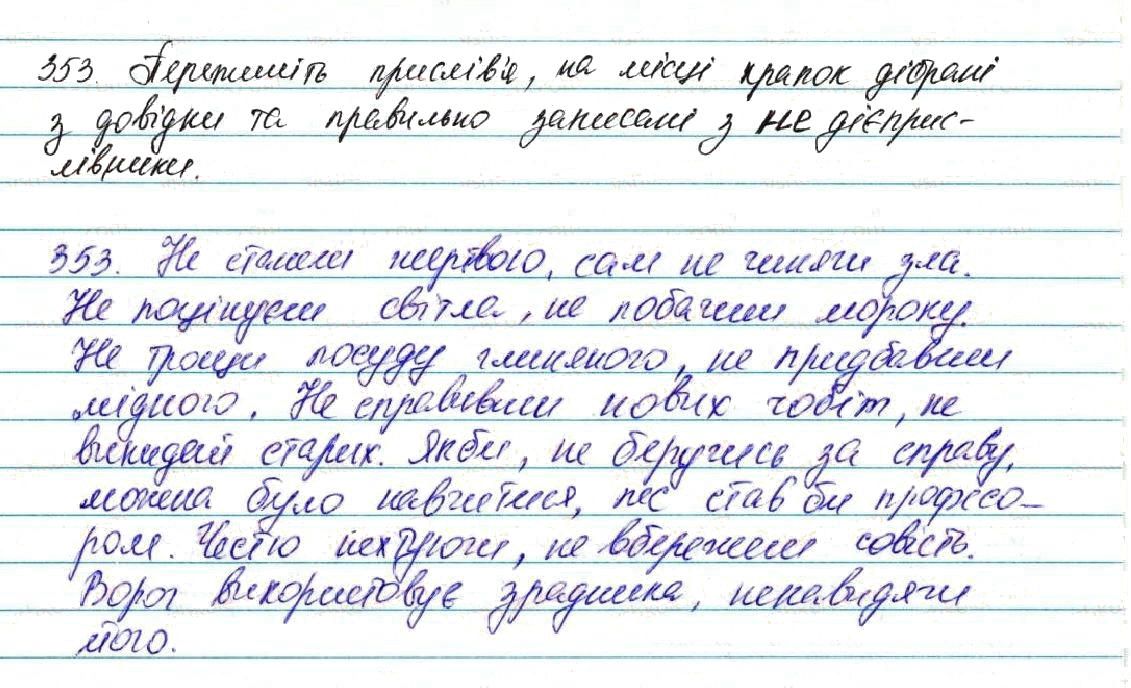 353. Перепишіть прислів'я, на місці крапок дібрані
з довідки та правильно записані з не дієприс-
лівники.
353. Не станеш жертвою, сам не чинячи зла.
Не поцінуєш світла, не побачиш мороку.
Не трощи посуду глиняного, не придбавши
мідного. Не справивши нових чобіт, не
викидай старих. Якби, не беручись за справу,
можна було навчитися, пес став би професо-
ром. Честю нехтуючи, не вбережеш совість.
Ворог використовує зрадника, ненавидячи
його.